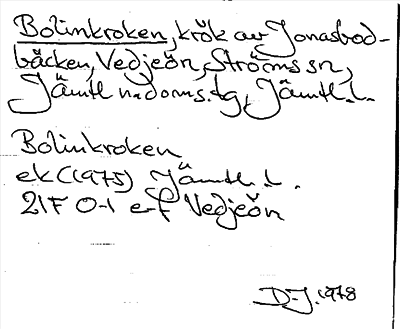 Bolinkroken, krök av Jonasbod-
bäcken, Vedjeön, Ströms sn,
Jämtl. n. doms. tg, Jämtl. l.
Bolinkroken
ek (1975) Jämtl. l.
21F 0-1 e-f Vedjeön
D-J. 1978